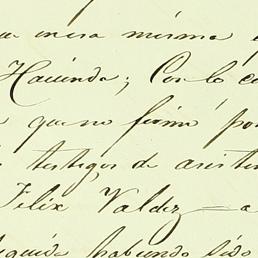 una misma
Hacienda; Con lo
que no firmó por
testigos de asisten
Felix Valdez - a
seguida habiendo sido